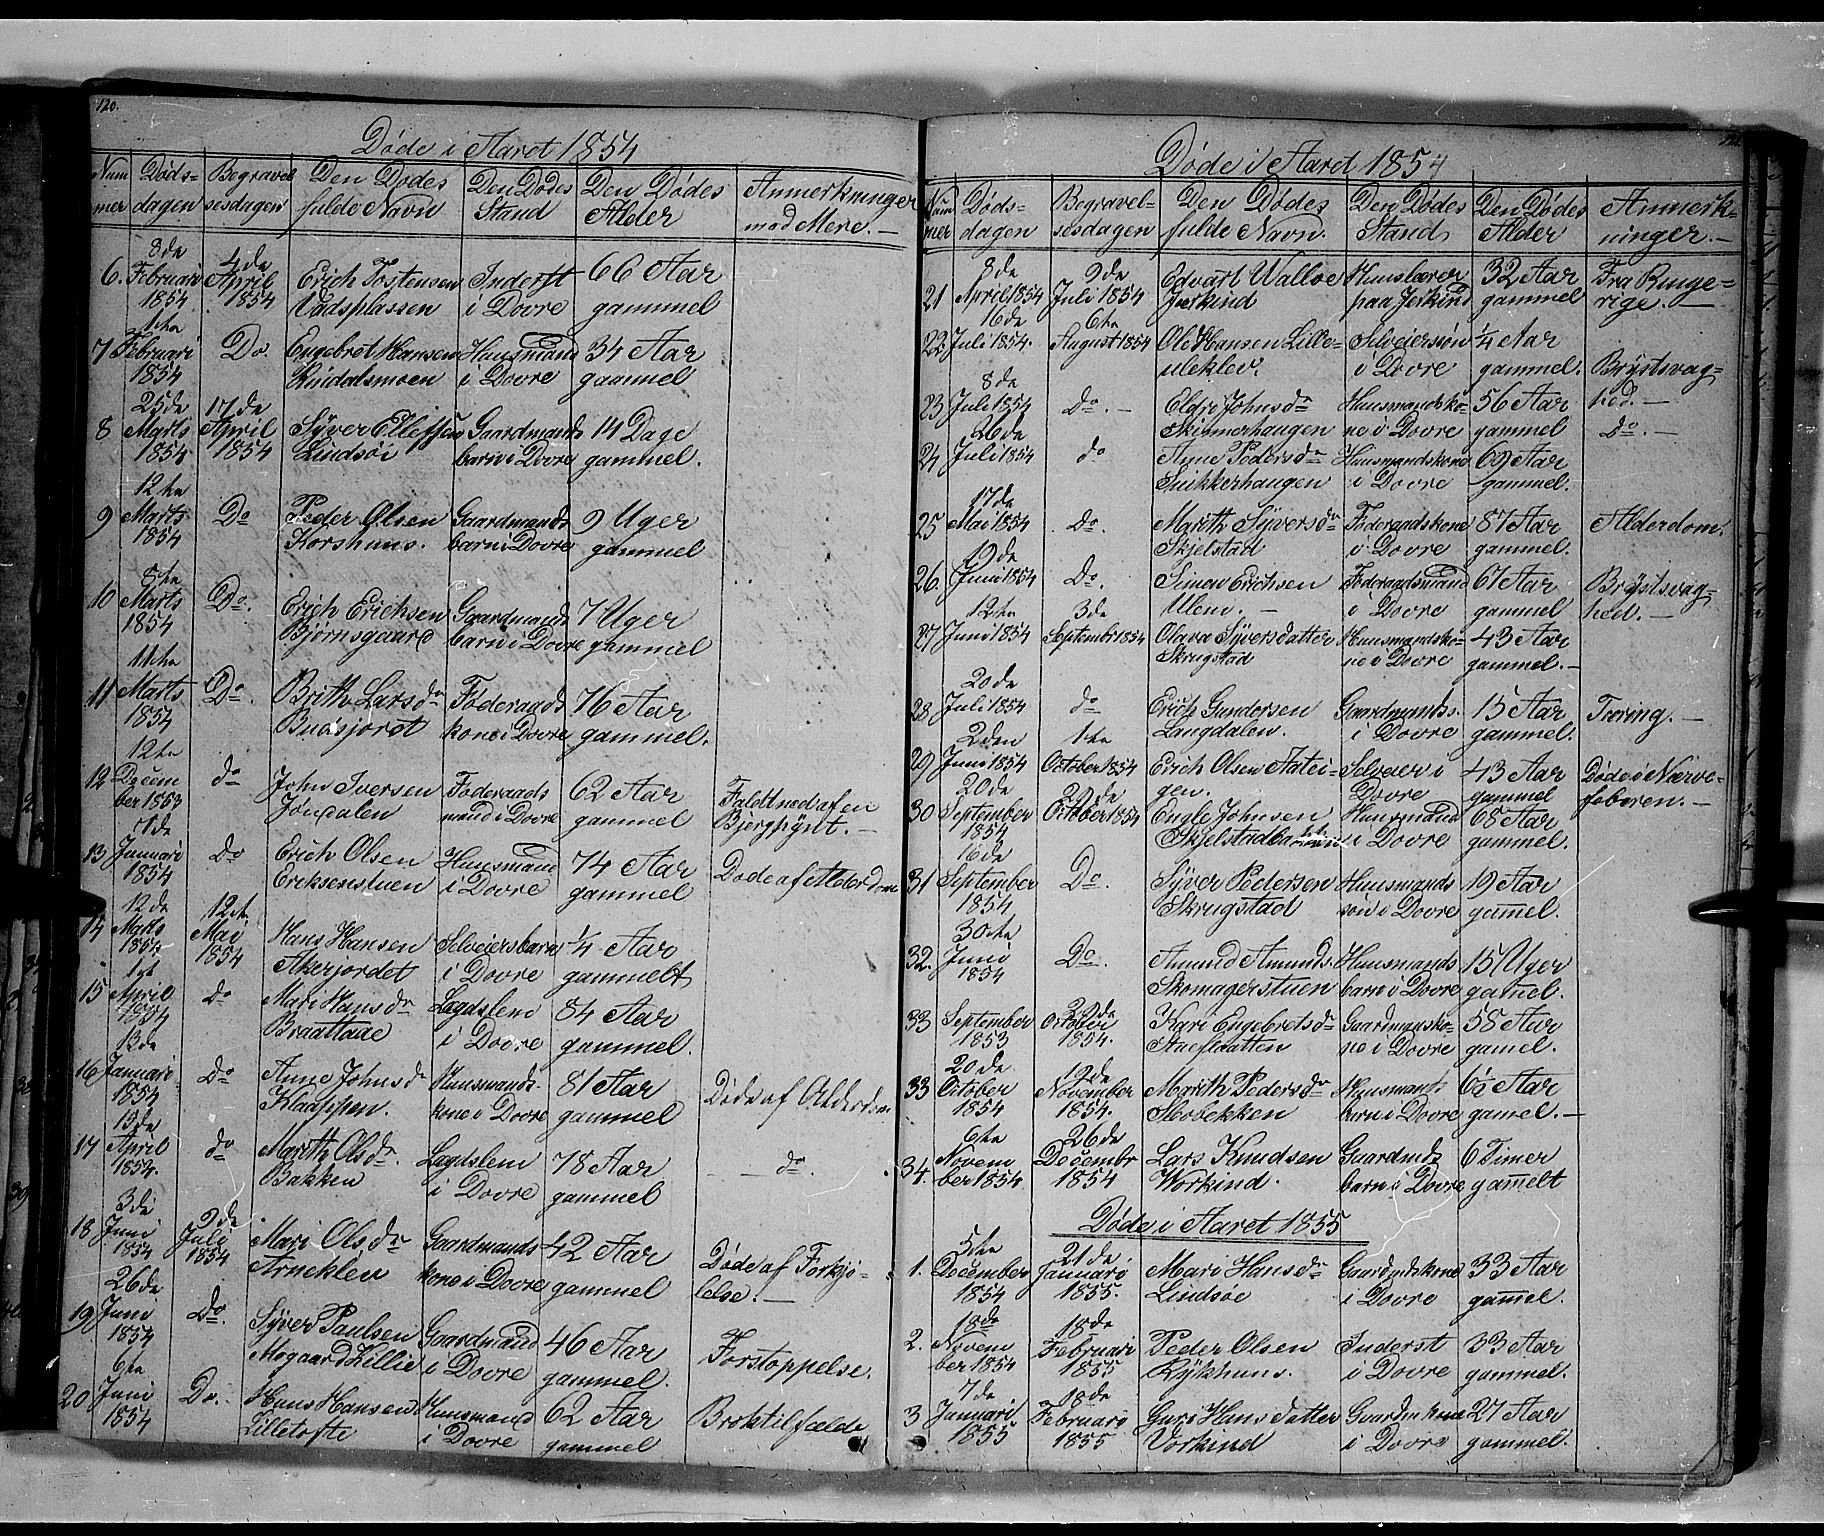 120.
Døde i Aaret 1854
Num
mer
Døds-
dagen
Begravel
sesdagen
Den Dødes
fulde Navn
Den Dødes
Stand
Den Dødes
Alder
Anmerkninger
med Mere. —
8de
6. Februari
1854
4de
April
1854
Erich Tostensen
Vadsplassen
Inderst
i Dovre
66 Aar
gammel
1ta
7 Februari
1854
Do.
Engebret Hansen
Huusmand
i Dovre
34 Aar
gammel
25de
8 Marts
1854
17de
April
1854
Syver Ellefsen
Lindsøi
Gaardmands
barn i Dovre
14 Dage
gammel.
12ta
9 Marts
1854
Do
Peder Olsen
Korshuus.
Gaardmands
barn i Dovre
9 Uger
gammel
8ta
10 Marts
1854
Do.
Erich Erichsen
Bjørnsgaard
Gaardmands
barn i Dovre
7 Uger
gammel
11ta
11 Marts
1854
Do.
Brith Larsdr
Budsjordet
Føderaads
kone i Dovre
76 Aar
gammel.
12ta
12 Decem
ber 1853
do
John Iversen
Jøndalen
Føderaads
mand i Dovre
62 Aar
gammel
Faldt ned af en
Bjergpynt. —
13 Januari
1854
Do
Erich Olsen
Eriksenstuen
Huusmand
i Dovre
74 Aar
gammel
Døde af Alderdom
12de
14 Marts
1854
12ta
Mai
1854
Hans Hansen
Akerjordet
Selveiersbarn
i Dovre
1/4 Aar
gammelt
1st
15 April
1854
do
Mari Hansdr
Braattøde
Lægdslem
i Dovre
84 Aar
gammel.
13de
16 Januari
1854
Do
Anne Johnsdr
Klaappen.
Huusmands-
kone i Dovre
81 Aar
gammel
Døde af Alderdom
13de
17 April
1854.
do
Marith Olsdr.
Bakken
Lægdslem
i Dovre
78 Aar
gammel
— do.
3di
18 Juni
1854
9de
Juli
1854
Mari Olsdr
Arneklev
Gaardmands
kone i Dovre
42 Aar
gammel
Døde af Forkjø-
lelse. —
26de
19 Juni
1854
Do.
Syver Paulsen
Mogaard Killie
Gaardmand
i Dovre
46 Aar
gammel.
Forstoppelse.
6ta
20 Juni
1854
Do.
Hans Hansen
Lilletofte
Huusmand
i Dovre
62 Aar
gammel
Broktilfælde
Døde i Aaret 1854
Num
mer
Døds-
dagen
Begravel-
sesdagen
Den Dødes
fulde Navn.
Den Dødes
Stand
Den Dødes
Alder
Anmerk-
ninger. —
8de
21 April 1854
9de
Juli 1854
Edvart Walloe
Jerkind
Huuslærer
paa Jerkind
32 Aar
gammel
Fra Ringe-
rige. —
16de
22 Juli 1854.
6ta
August 1854
Ole Hansen Lille-
uleklev.
Selveiersøn
i Dovre
1/4 Aar
gammel.
Brystsvag-
hed. —
8de
23 Juli 1854
Do. —
Eldri Johnsdr
Skinnerhaugen
Huusmandsko-
ne i Dovre
56 Aar
gammel
Do. —
26de
24 Juli 1854
do
Anne Pedersdr
Snikkerhaugen
Huusmandskone
i Dovre
69 Aar
gammel.
17de
25 Mai 1854
Do.
Marith Syversdr
Skjelstad
Føderaadskone
i Dovre
87 Aar
gammel.
Alderdom.
19de
26. Juni 1854
Do.
Simen Erichsen
Ulen. —
Føderaadsmand
i Dovre
67 Aar
gammel
Brystsvag-
hed. —
12ta
27 Juni 1854
3de
September 1854
Olava Syversdatter
Skrugstad
Huusmandsko-
ne i Dovre
43 Aar
gammel. —
20de
28 Juli 1854
do
Erich Gundersen
Langdalen.
Gaardmandss.
i Dovre
15 Aar
gammel.
Tæring. —
2den
29 Juni 1854
1ta
October 1854
Erich Olsen Aatei-
gen.
Selveier i
Dovre
43 Aar
gammel
Døde i Nerve-
feberen. —
20de
30 September
1854
29de
October 1854
Engle Johnsen
Skjelstadbakken
Huusmand
i Dovre
68 Aar
gammel.
16de
31 September
1854
Do.
Syver Pedersen
Skrugstad
Huusmands
søn i Dovre
19 Aar
gammel.
30ta
32. Juni
1854
Do.
Amund Amunds.
Skomagerstuen
Huusmands
barn i Dovre
15 Uger
gammel.
33 September
1853
29de
October
1854.
Kari Engebretsdr
Gaardmandsko-
ne i Dovre
58 Aar
gammel.
20de
33 October
1854
19de
November
1854.
Marith Pedersdr
Huusmands
barn i Dovre
6½ Aar
gammel. —
6ta
34. Novem
ber 1854
26de
Decembr
1854
Lars Knudsen
Workind.
Gaardmds
barn i Dovre
6 Timer
gammelt
Døde i Aaret 1855
5ta
1. December
1854
21de
Januari
1855.
Mari Hansdr
Lindsøe
Gaardmdskone
i Dovre
33 Aar
gammel.
18de
2. Novem
ber 1854
18de
Februari
1855
Peder Olsen
Rykhuus.
Inderst
i Dovre
33 Aar
gammel.
7de
3 Januari
1855
18de
Februari
1855
Guri Hansdatter
Vorkind
Gaardmkone
i Dovre
27 Aar
gammel.